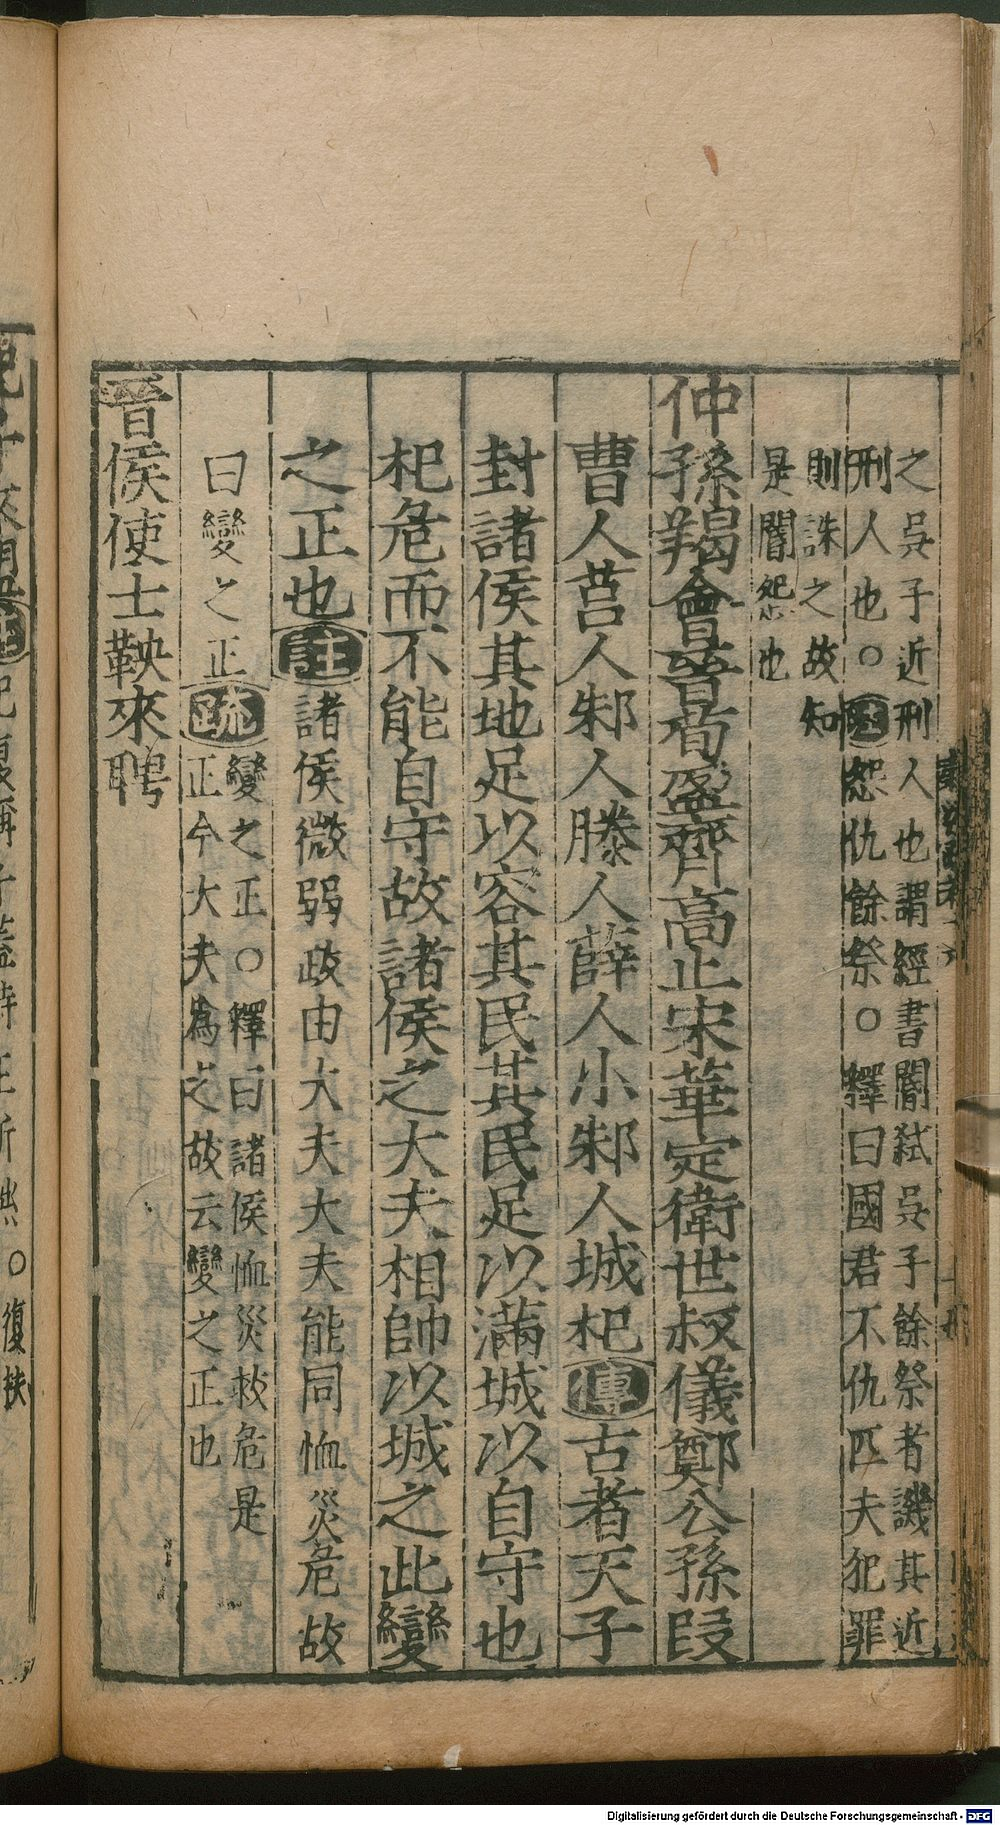 之吳子近刑人也謂經書閽弒吳子餘祭者譏其近
刑人也○疏怨仇餘祭○釋曰國君不仇匹夫犯罪
則誅之故知
是閽怨也
仲孫羯會晉荀盈齊高止宋華定衛世叔儀鄭公孫段
曹人莒人邾人滕人薛人小邾人城杞傳古者天子
封諸侯其地足以容其民其民足以滿城以自守也
杞危而不能自守故諸侯之大夫相帥以城之此變
之正也註諸侯微弱政由大夫大夫能同恤災危故
曰變之正疏變之正○釋曰諸侯恤災救危是
正今大夫為之故云變之正也
晉侯使士鞅來聘
Digitalisierung gefördert durch die Deutsche Forschungsgemeinschaft - DFG